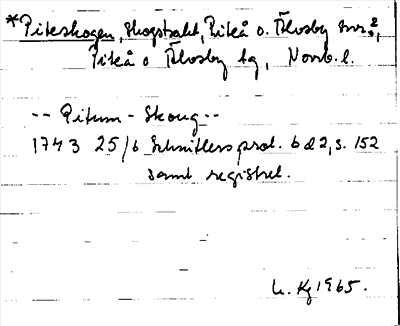 *Piteskogen, Skogstrakt, Piteå o. Älvsby snr?,
Piteå o Älvsby tg, Norrb. l.
-- Pitum - Skoug --
1743 25/6 Schnitlers prot. bd 2, s. 152
samt registret.
Kg 1965.